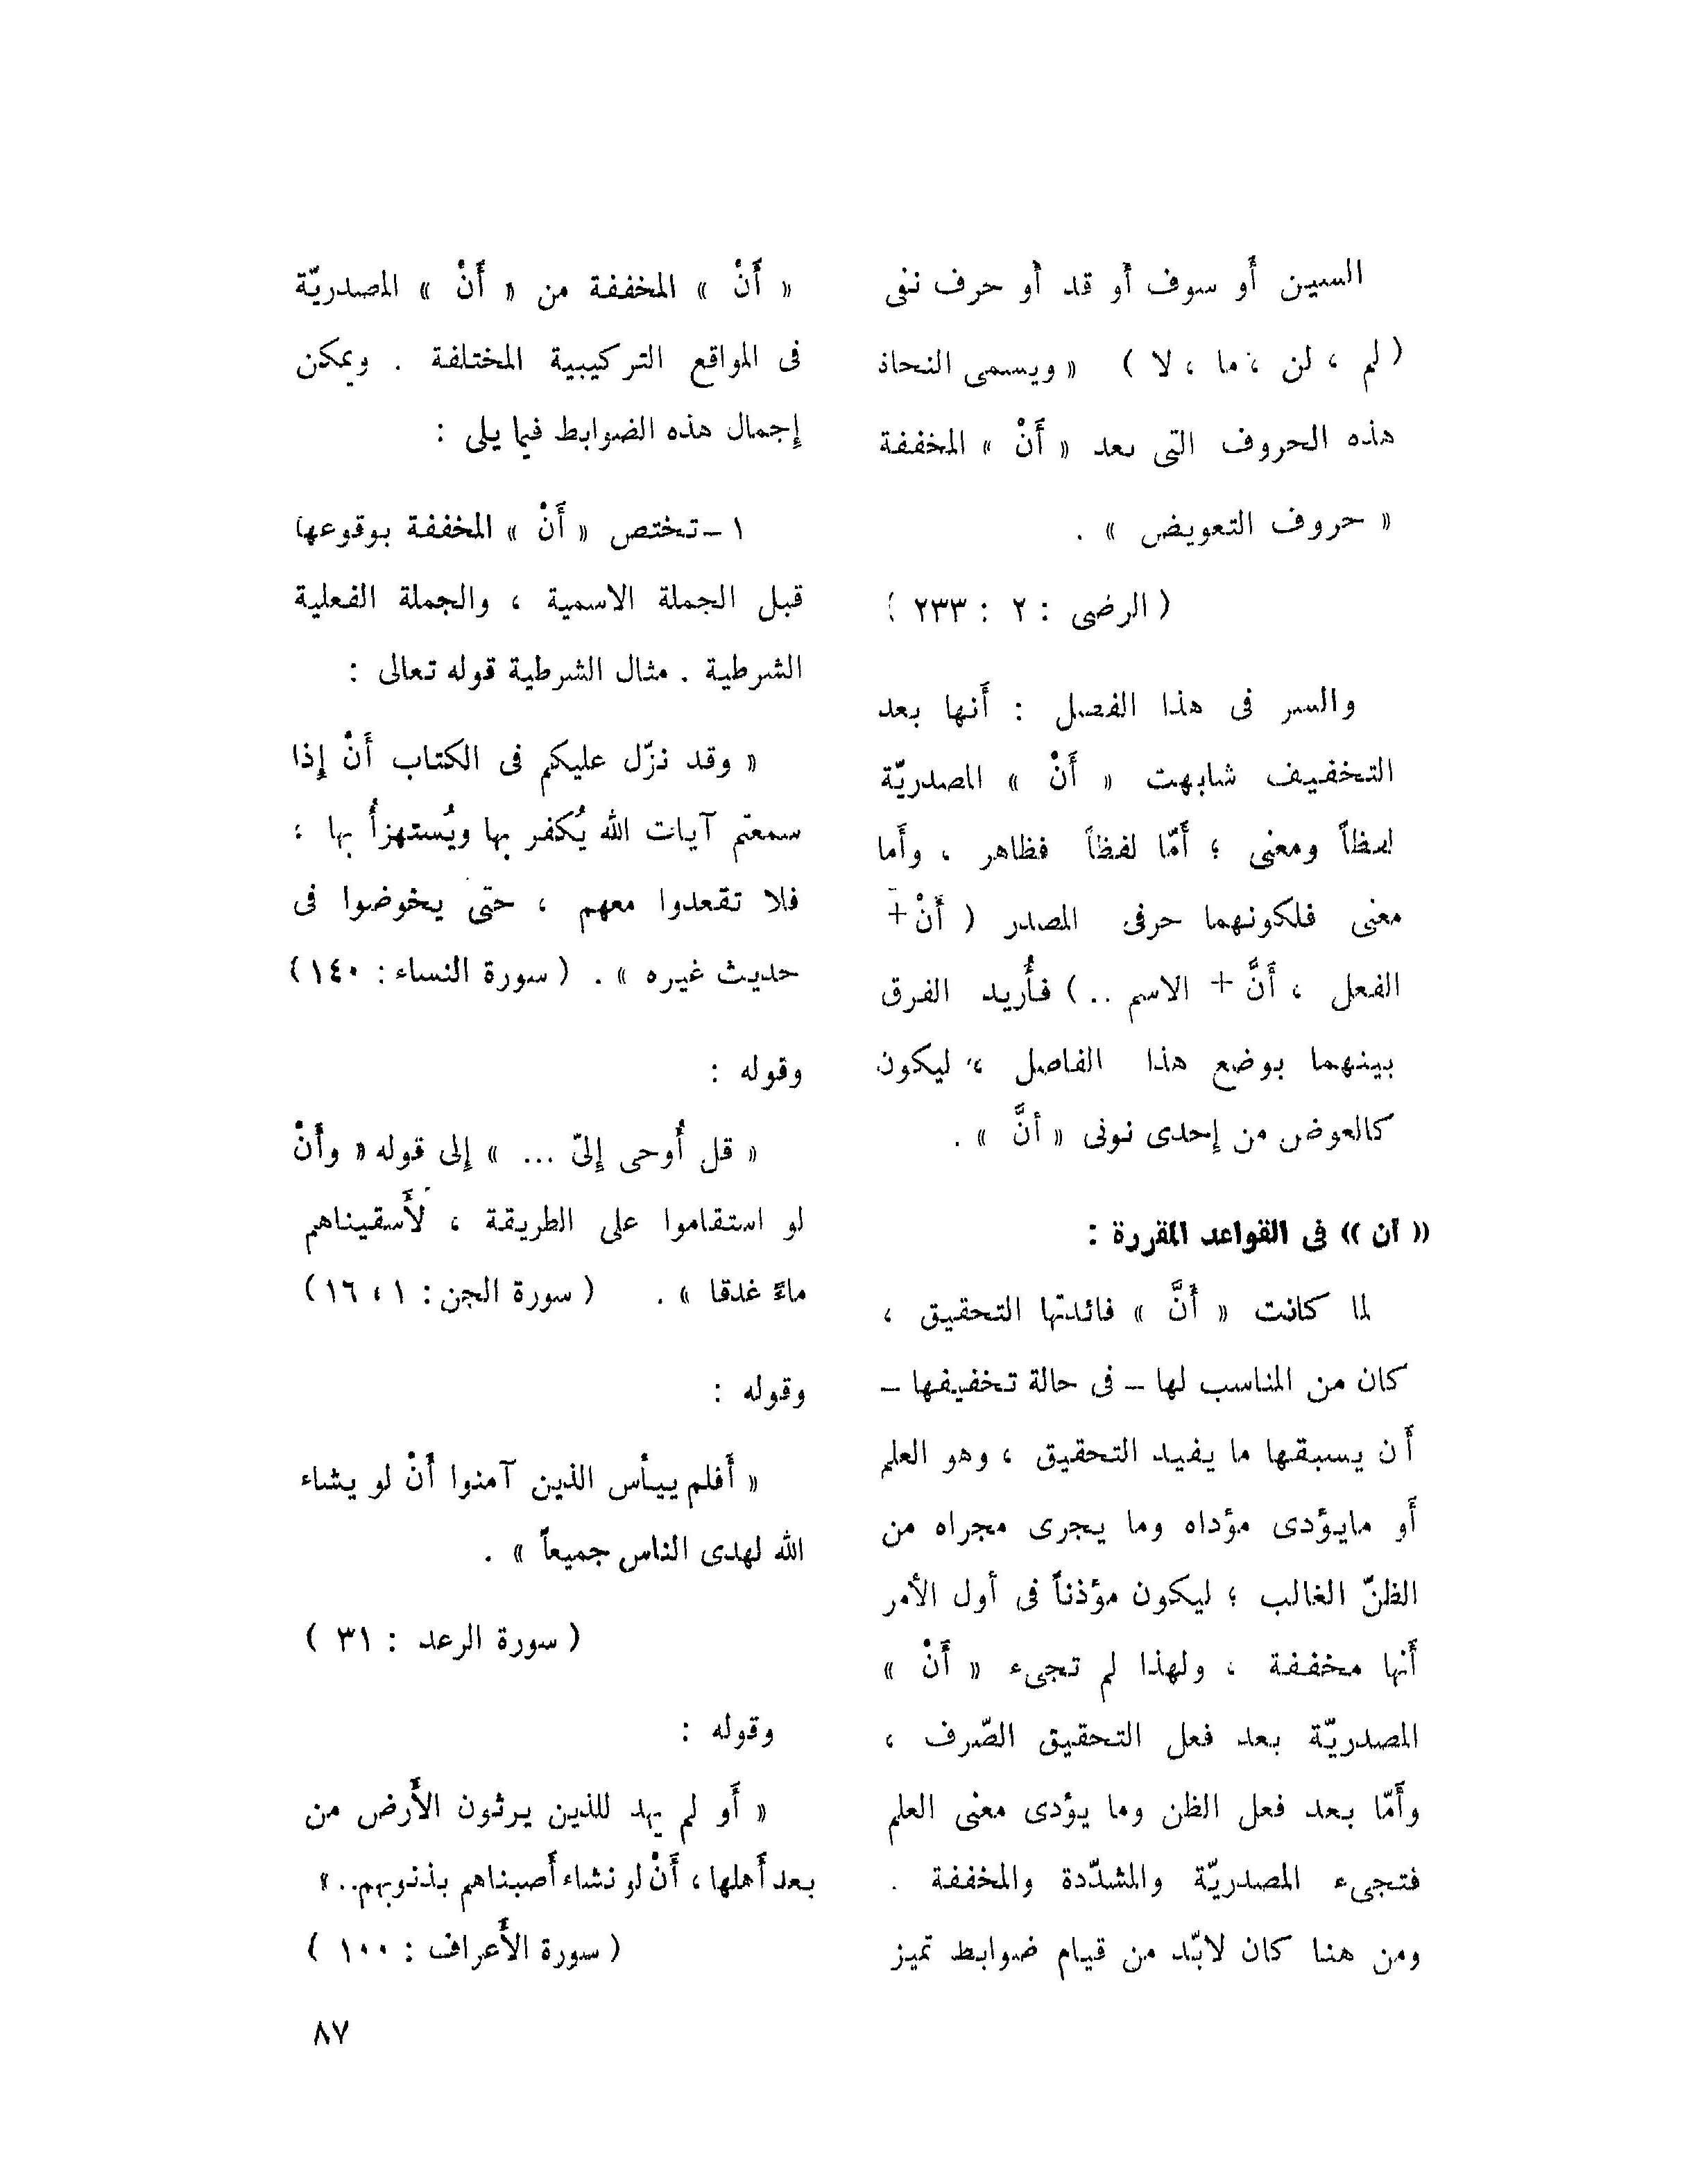 السين أَو سوف أَو قد أَو حرف نفى
( لم ، لن ، ما ، لا ) « ويسمى النحاذ
هذه الحروف التى بعد « أَنْ » المخففة
« حروف التعويض » .
( الرضى : ٢ : ٢٣٣ )
والسر فى هذا الفصل : أَنها بعد
التخفيف شابهت « أَنْ » المصدريّة
لفظاً ومعنى ؛ أَمّا لفظاً فظاهر ، وأَما
معنى فلكونهما حرفى المصدر ( أَنْ +
الفعل ، أَنَّ + الاسم .. ) فأُريد الفرق
بينهما بوضع هذا الفاصل ، ليكون
كالعوض من إحدى نونى « أنَّ » .
« أن » فى القواعد المقررة :
لما كانت « أَنَّ » فائدتها التحقيق ،
كان من المناسب لها – فى حالة تخفيفها –
أَن يسبقها ما يفيد التحقيق ، وهو العلم
أَو مايؤدى مؤداه وما يجرى مجراه من
الظنّ الغالب ؛ ليكون مؤذناً فى أول الأمر
أَنها مخففة ، ولهذا لم تجىء « أَنْ »
المصدريّة بعد فعل التحقيق الصّرف ،
وأَمّا بعد فعل الظن وما يؤدى معنى العلم
فتجىء المصدريّة والمشدّدة والمخففة .
ومن هنا كان لابّد من قيام ضوابط تميز
« أَنْ » المخففة من « أَنْ » المصدريّة
فى المواقع التركيبية المختلفة . ويمكن
إجمال هذه الضوابط فيما يلى :
١ – تختص « أَنْ » المخففة بوقوعها
قبل الجملة الاسمية ، والجملة الفعلية
الشرطية . مثال الشرطية قوله تعالى :
« وقد نزّل عليكم فى الكتاب أَنْ إِذا
سمعتم آيات الله يُكفر بها ويُستهزأُ بها ؛
فلا تقعدوا معهم ، حتى يخوضوا فى
حديث غيره » . ( سورة النساء : ١٤٠ )
وقوله :
« قل أُوحى إِلىّ ... » إلى قوله « وأَنْ
لو استقاموا على الطريقة ، لأَسقيناهم
ماءً غدقا » . ( سورة الجن : ١ ، ١٦ )
وقوله :
« أَفلم ييأس الذين آمنوا أَنْ لو يشاء
الله لهدى الناس جميعاً » .
( سورة الرعد : ٣١ )
وقوله :
« أَو لم يهد للذين يرثون الأَرض من
بعد أَهلها ، أَنْ لو نشاء أَصبناهم بذنوبهم .. »
( سورة الأَعراف : ١٠٠ )
٨٧